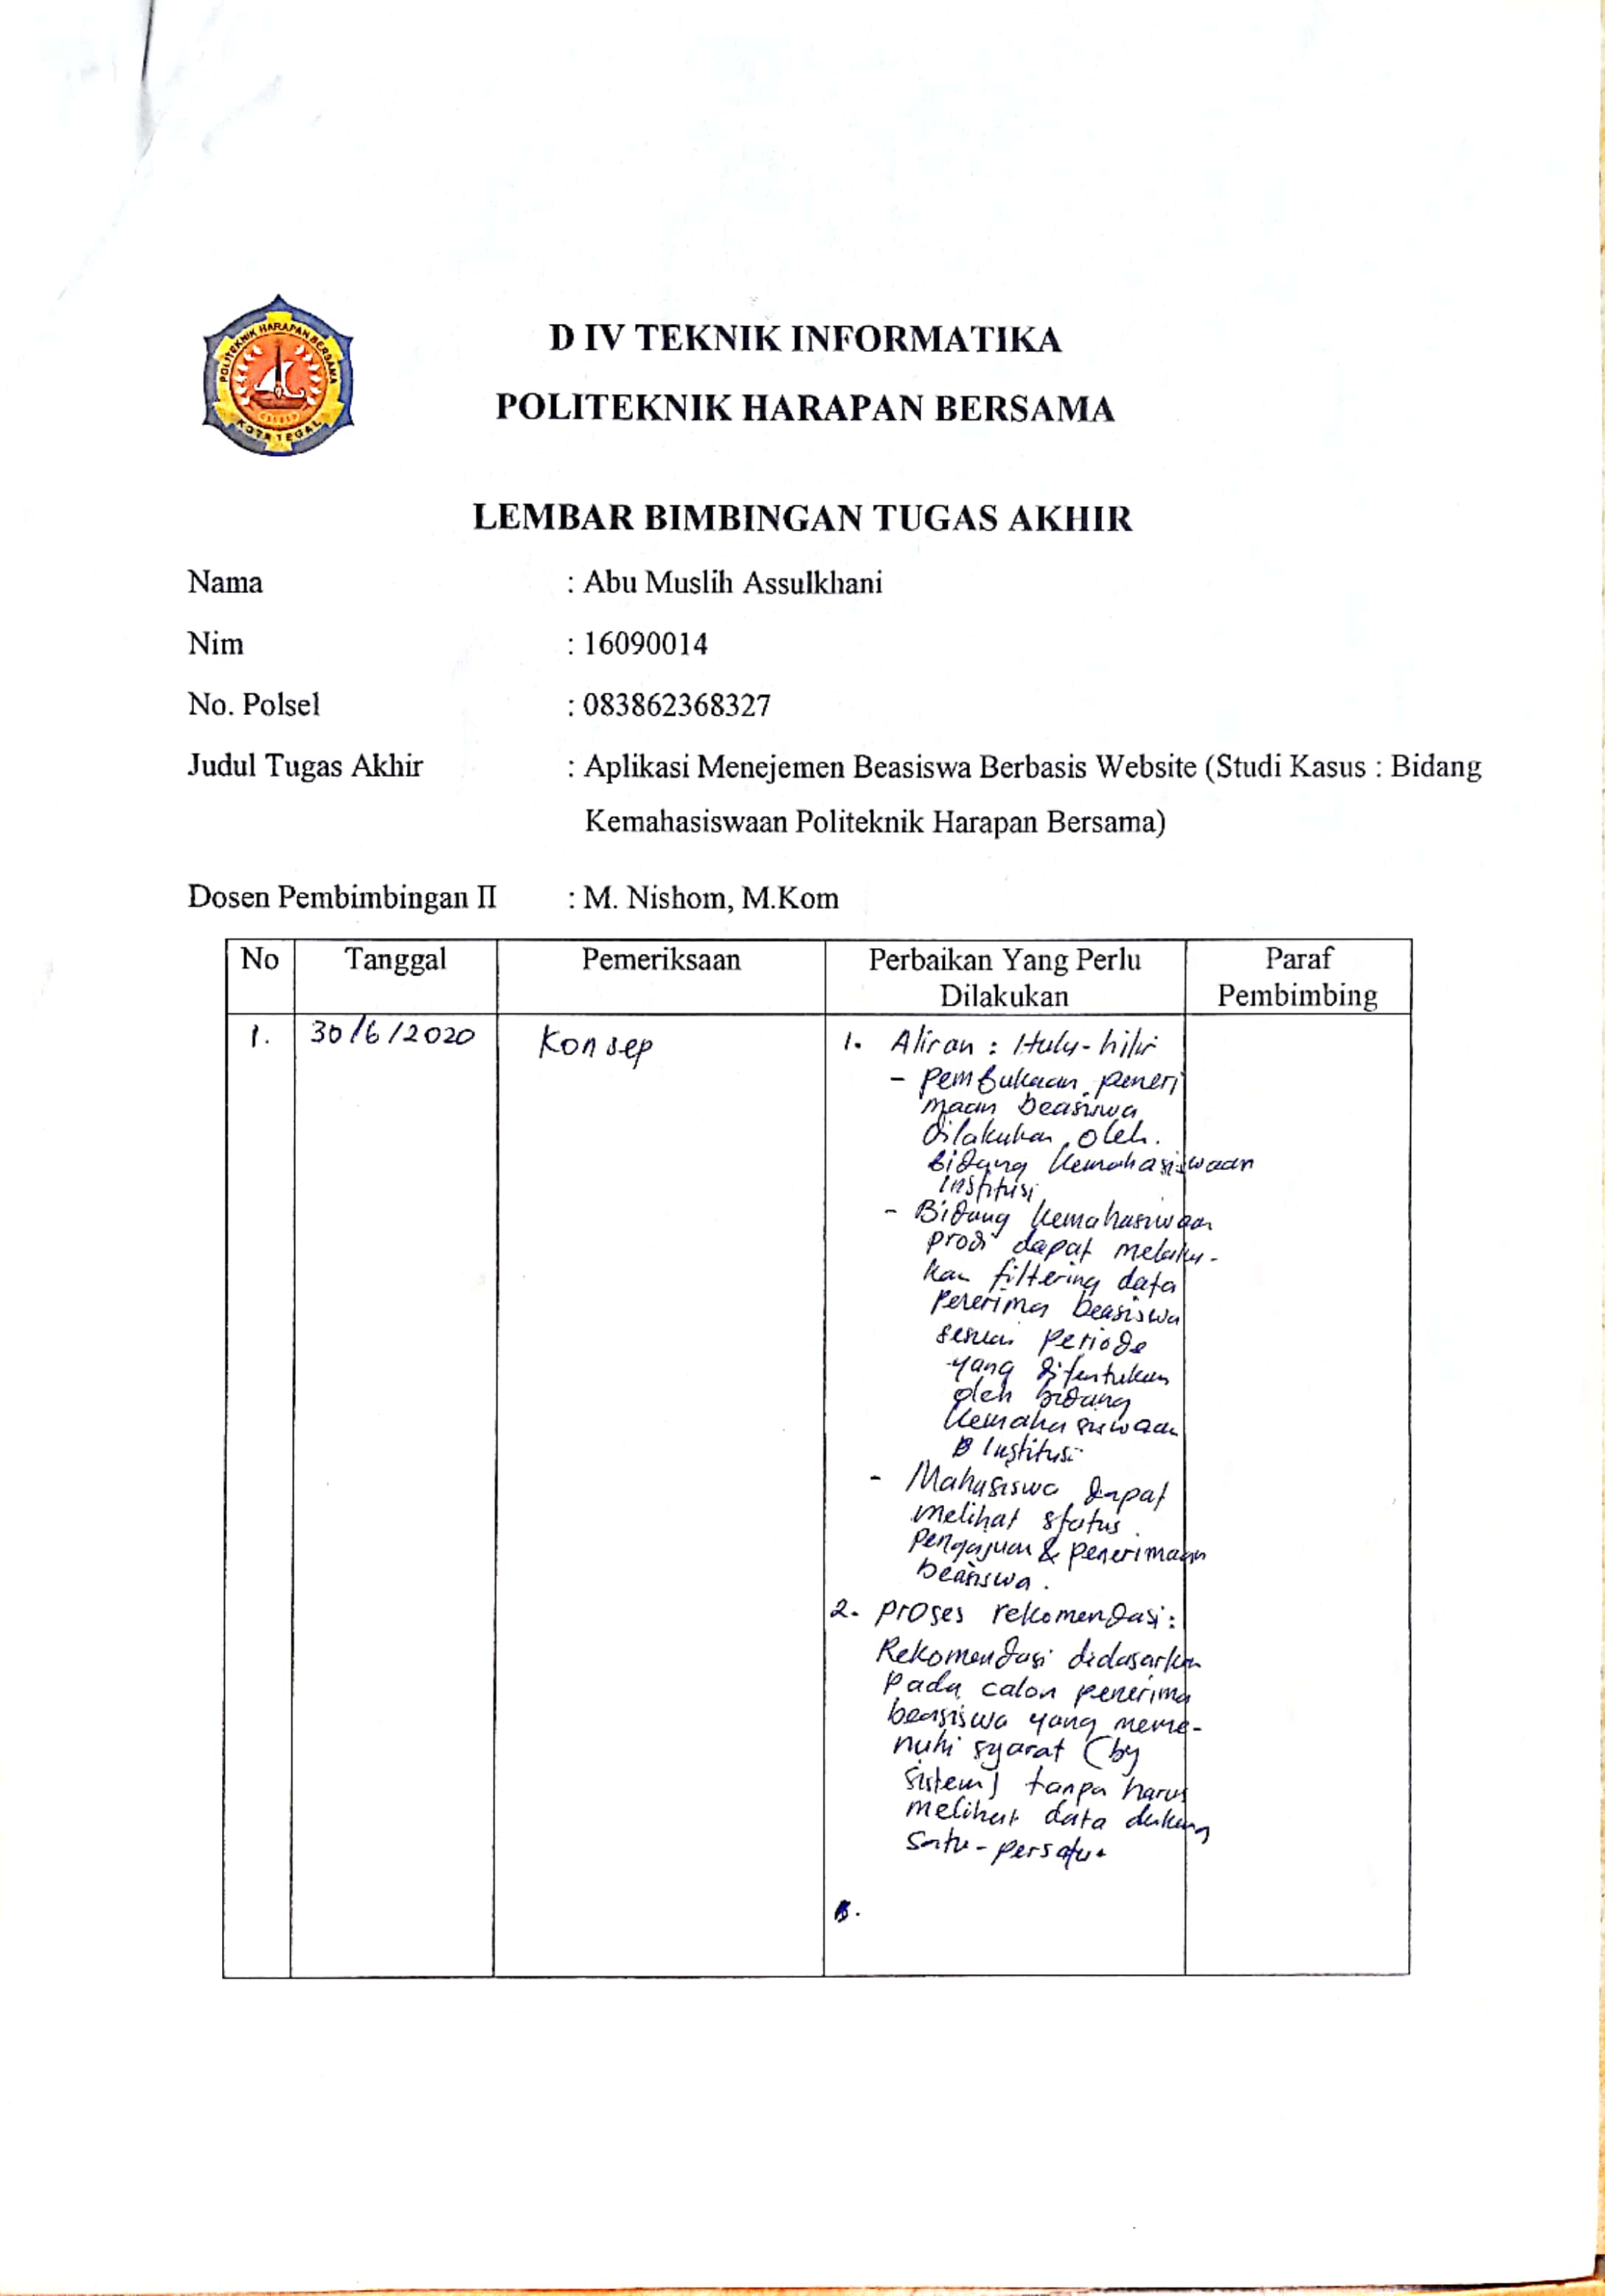 POLITEKNIK HARAPAN BERSAMA
KOTA TEGAL
D IV TEKNIK INFORMATIKA
POLITEKNIK HARAPAN BERSAMA
LEMBAR BIMBINGAN TUGAS AKHIR
Nama : Abu Muslih Assulkhani
Nim : 16090014
No. Polsel : 083862368327
Judul Tugas Akhir : Aplikasi Menejemen Beasiswa Berbasis Website (Studi Kasus : Bidang
Kemahasiswaan Politeknik Harapan Bersama)
Dosen Pembimbingan II : M. Nishom, M.Kom
No Tanggal Pemeriksaan Perbaikan Yang Perlu Dilakukan Paraf Pembimbing
1. 30/6/2020 Konsep
1. Aliran : Hulu-hilir
- Pembukaan peneri
maan beasiswa
dilakukan oleh
bidang kemahasiswaan
institusi
- Bidang kemahasiswaan
prodi dapat melaku-
kan filtering data
penerima beasiswa
sesuai periode
yang ditentukan
oleh bidang
kemahasiswaan
Institusi
- Mahasiswa dapat
melihat status
pengajuan & penerimaan
beasiswa.
2. Proses rekomendasi:
Rekomendasi didasarkan
pada calon penerima
beasiswa yang meme-
nuhi syarat (by
sistem) tanpa harus
melihat data dukung
satu-persatu.